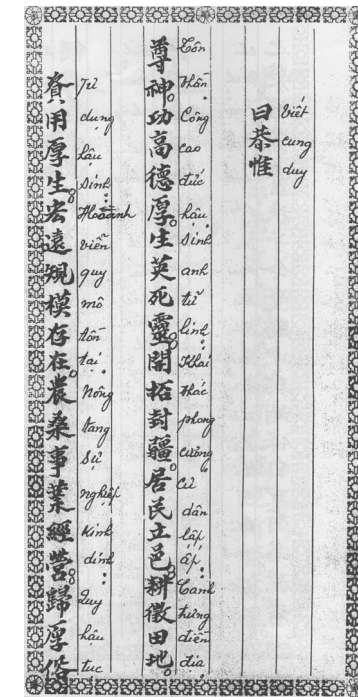 曰恭惟
Viết cung duy
尊神。功高德厚。生英死靈。開拓封疆。居民立邑。耕徵田地。
Tôn Thần Công cao đức hậu Sinh anh tử linh Khai thác phong cường Cư dân lập ấp Canh trưng điền địa
資用厚生。宏遠規模存在。農桑事業經營。歸厚俗
Tư dụng hậu Sinh viễn quy mô tồn tại Nông tang Sự nghiệp Kinh dinh Quy hậu tục